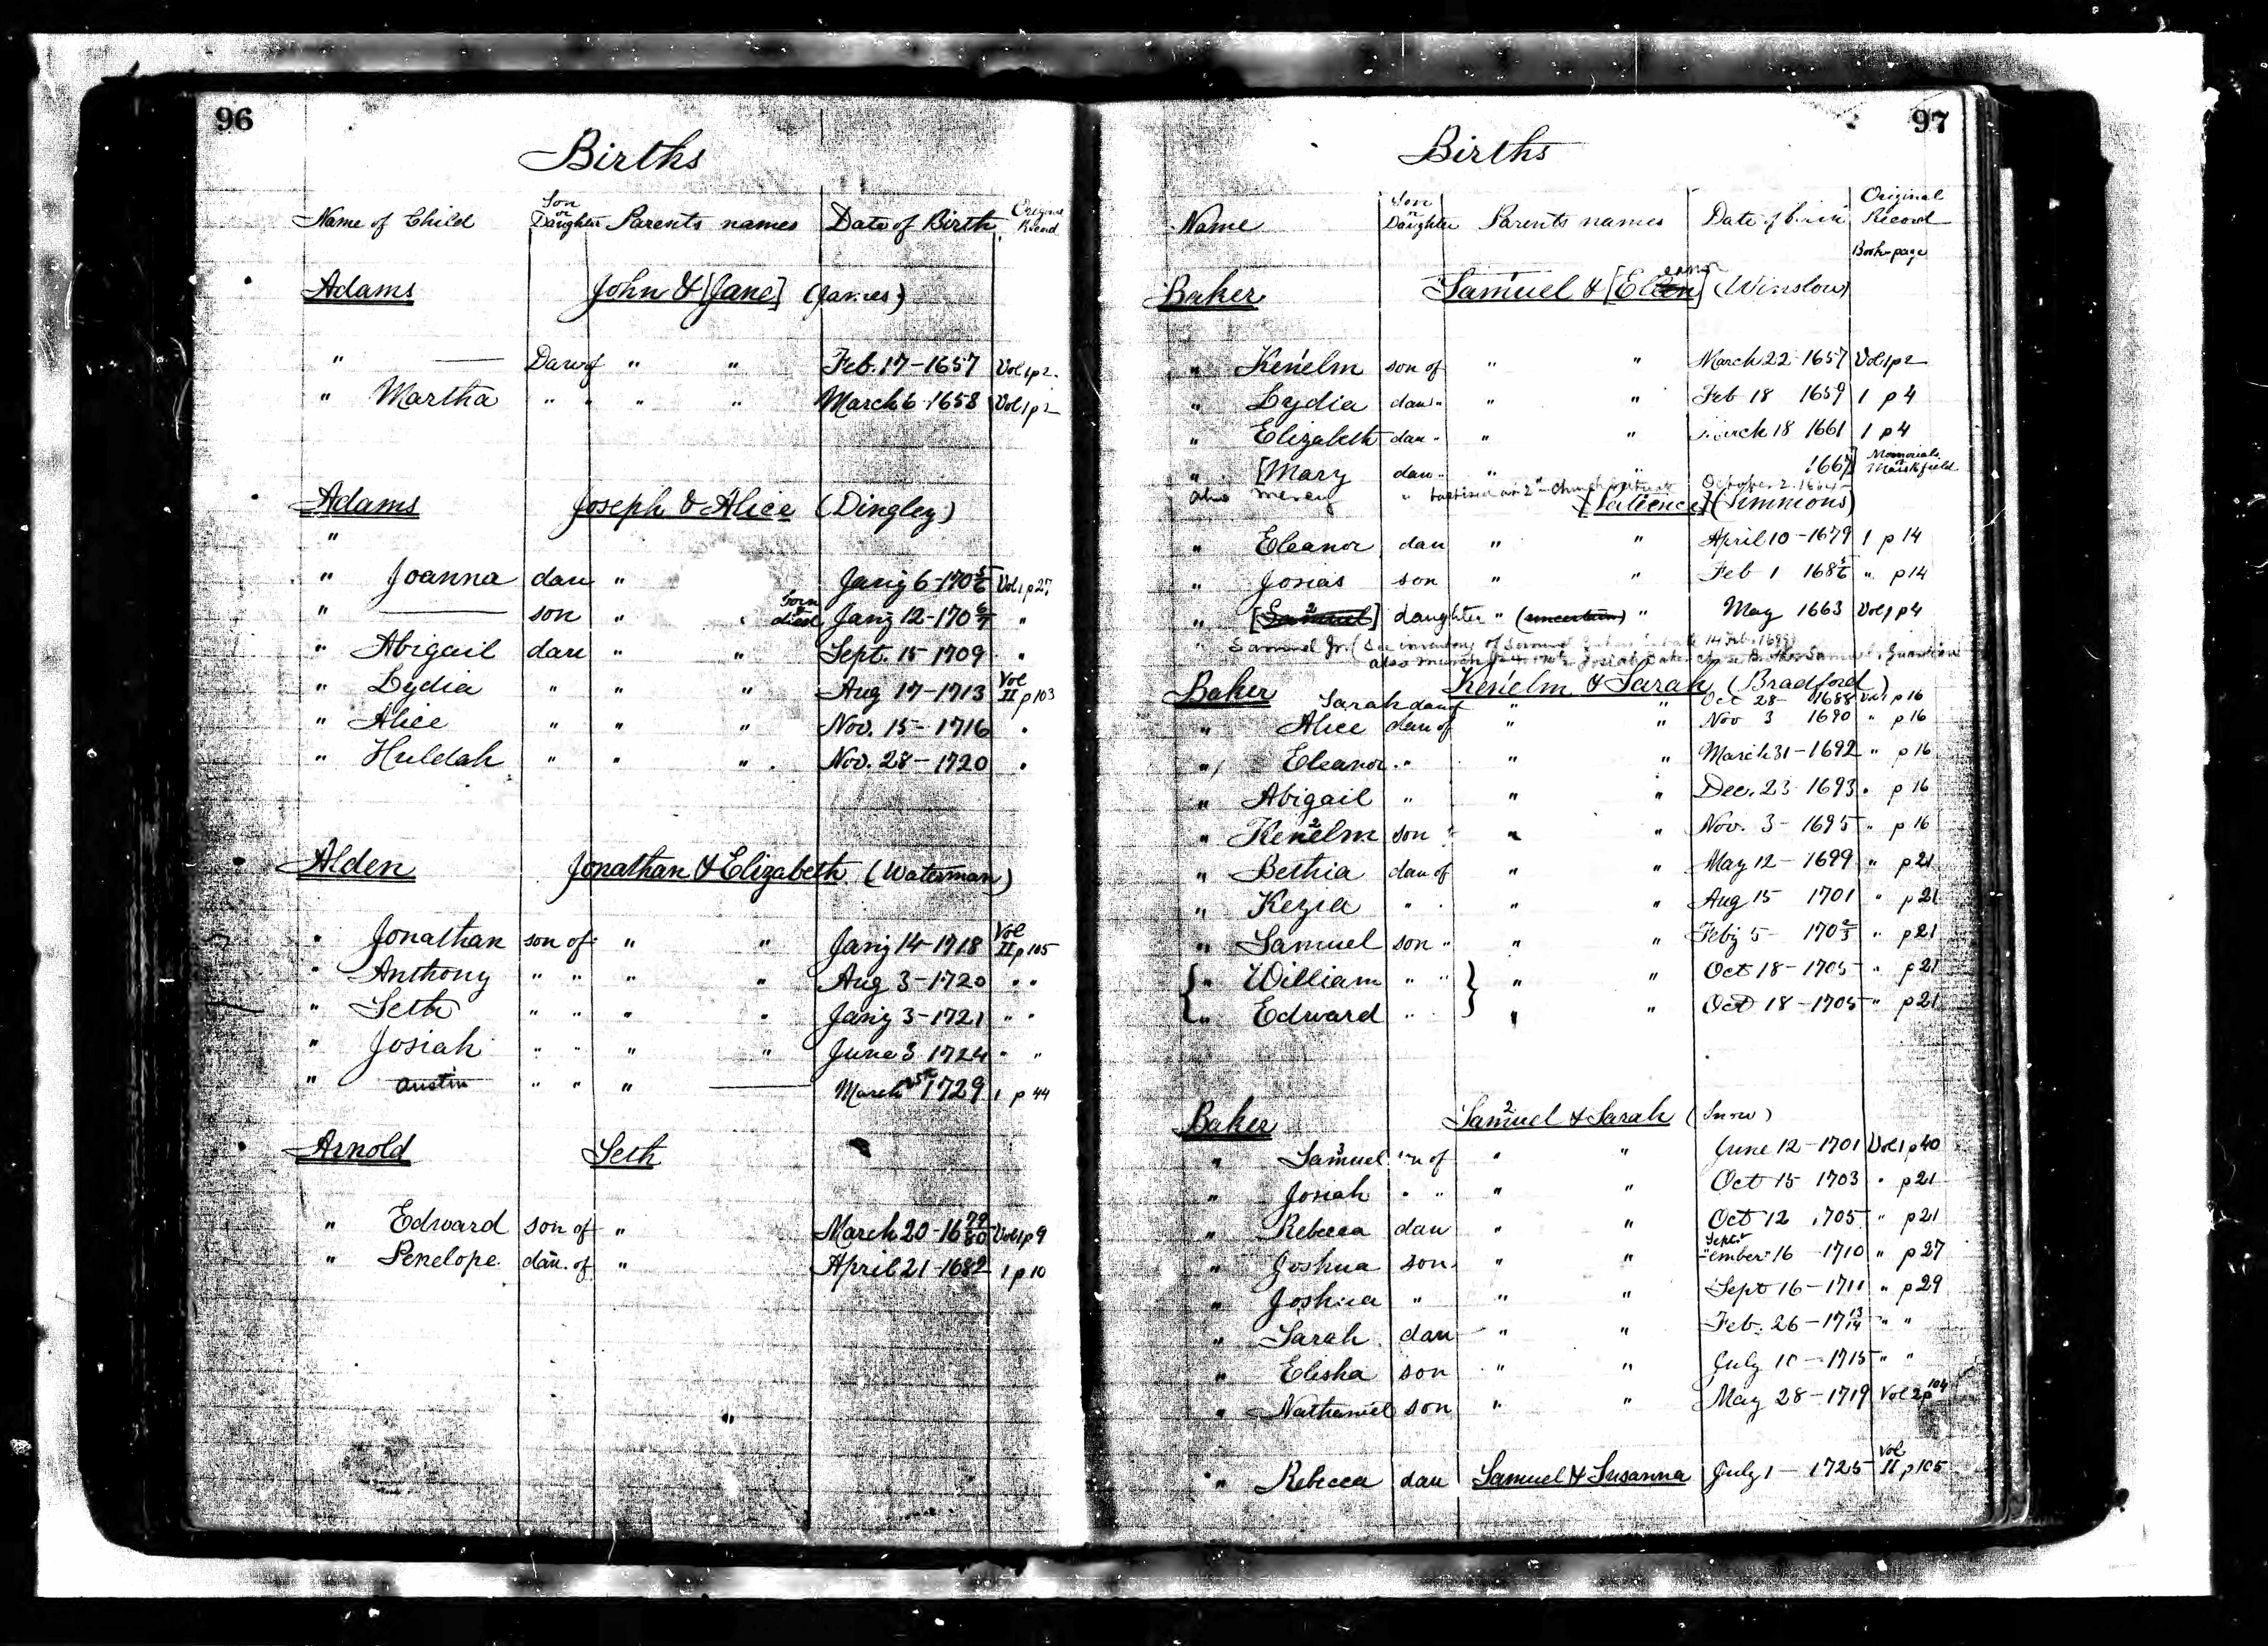 96
Births
Name of Child Son or Daughter Parents names Date of Birth Original Record
Adams John & [Jane] (James)
" —— Dau of " " Feb. 17-1657 Vol 1 p 2.
" Martha " " " " March 6-1658 Vol 1 p 2
Adams Joseph & Alice (Dingley)
"
" Joanna dau " Jan'y 6-170 5/6 Vol 1 p 27
" —— son " " born & died Jan'y 12-170 6/7 "
" Abigail dau " " Sept. 15-1709 "
" Lydia " " " Aug 17-1713 Vol II p 103
" Alice " " " Nov. 15-1716 "
" Huldah " " " Nov. 28-1720 "
Alden Jonathan & Elizabeth (Waterman)
" Jonathan son of " " Jan'y 14-1718 Vol II p 105
" Anthony " " " " Aug 3-1720 " "
" Seth " " " " Jan'y 3-1721 " "
" Josiah " " " " June 3 1724 " "
" Austin " " " —— March 1729 1 p 44
Arnold Seth
" Edward son of " March 20-16 79/80 Vol 1 p 9
" Penelope dau. of " April 21-1682 1 p 10
"
97
Births
Name Son or Daughter Parents names Date of birth Original Record
Book - page
Baker Samuel & [Eleanor] (Winslow)
" Kenelm son of " " March 22-1657 Vol 1 p 2
" Lydia dau " " " Feb 18 1659 1 p 4
" Elizabeth dau " " " March 18 1661 1 p 4
" [Mary dau " " " 166 ] Memorials Marshfield
also Mercy " baptised at 2nd Church October 2. 1664
[Patience] (Simmons)
" Eleanor dau " " April 10-1679 1 p 14
" Josias son " " Feb 1 168 5/6 " p 14
" [Samuel] daughter " (uncertain) " May 1663 Vol 1 p 4
" Samuel Jr. (See inventory of Samuel 1699)
also March Josiah Brother Samuel, Guardian
Baker Kenelm & Sarah (Bradford)
Sarah dau of " " Oct 28 1688 Vol 1 p 16
" Alice dau of " " Nov 3 1690 " p 16
" Eleanor " " " March 31-1692 " p 16
" Abigail " " " Dec. 23 1693 " p 16
" Kenelm 2 son " " " Nov. 3-1695 " p 16
" Bethia dau of " " May 12-1699 " p 21
" Kezia " " " " Aug 15 1701 " p 21
" Samuel son " " " Feb'y 5-170 2/3 " p 21
{ " William " " } " " Oct 18-1705 " p 21
{ " Edward " " } " " Oct 18-1705 " p 21
Baker Samuel 2 & Sarah (Snow)
" Samuel 3 son of " " June 12-1701 Vol 1 p 40
" Josiah " " " " Oct 15 1703 " p 21
" Rebecca dau " " Oct 12 1705 " p 21
" Joshua son " " Sept "ember" 16 1710 " p 27
" Joshua " " " Sept 16-1711 " p 29
" Sarah dau " " Feb. 26-17 13/14 " "
" Elisha son " " July 10-1715 " "
" Nathaniel son " " May 28-1719 Vol 2 p 104
" Rebecca dau Samuel & Susanna July 1-1725 Vol II p 105